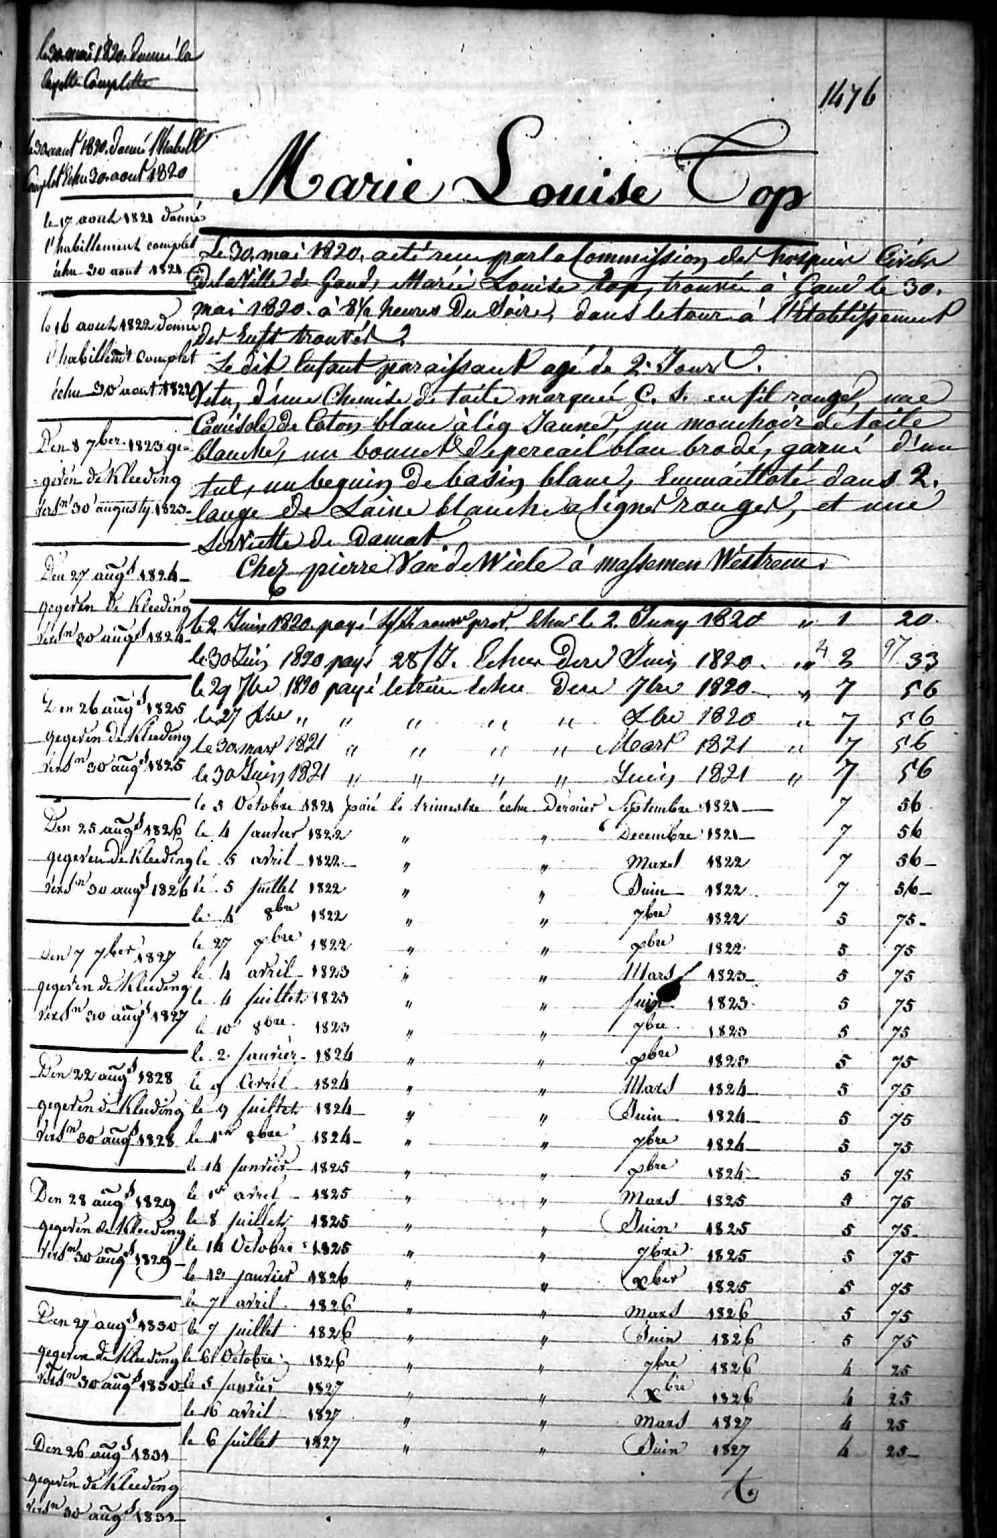 le 30 mai 1820. donné la
layette Complette
1476
le 30 aout 1820. donné l'habillt
Complet Echu 30. aout 1820
Marie Louise Top
le 17 aout 1821 donné
l'habillement complet
échu 30 aout 1821
le 16 aout 1822 donné
l'habillemt complet
échu 30 aout 1822
Den 8 7ber 1823 ge-
geven de Kleeding
versn 30 augusty 1823-
Den 27 augt 1824-
gegeven de Kleeding
versn 30 augt 1824-
Den 26 augt 1825
gegeven de Kleeding
versn 30 augt 1825
Den 25 augt 1826
gegeven de Kleeding
versn 30 augt 1826
Den 7 7ber 1827
gegeven de Kleeding
versn 30 augt 1827
Den 22 augt 1828
gegeven de Kleeding
versn 30 augt 1828
Den 28 augt 1829
gegeven de Kleeding
versn 30 augt 1829-
Den 27 augt 1830
gegeven de Kleeding
versn 30 augt 1830-
Den 26 augt 1831
gegeven de Kleeding
versn 30 augt 1831-
Le 30. mai 1820. a été reçu par la Commission des hospices Civils
de la Ville de Gand, Marie Louise Top, trouvée à Gand le 30.
mai 1820. à 8½ heures Du Soire, dans le tour à l'Etablissement
des Enfts trouvés.
Le dit Enfant paraissant agé de 2. Jours.
Vetu, d'une Chemise de toile marqué C. S. en fil rouge, une
Camisole de Coton blanc à lig Jaunes, un mouchoir de toile
blanche, un bonnet de percail blan brodé, garni d'un
tul, un beguin De basin blanc, Emmailloté dans 2.
lange De Laine blanche a lignes rouges, et une
Serviette de damat
Chez pierre Van de Wiele à massemen Westrem.
le 2 Juin 1820. payé prov. Echu le 2. Juny 1820 " 1 20.
le 30 Juin 1820 payé 28/J. Echu Dere Juin 1820. " 2 33
4 97
le 29 7bre 1820 payé le trim Echu Dere 7bre 1820 " 7 56
le 27 Xbre " " " " " Xbre 1820 " 7 56
le 30 mars 1821 " " " " Mars 1821 " 7 56
le 30 Juin 1821 " " " " Juin 1821 " 7 56
le 5 Octobre 1821 paié le trimestre échu Dernier Septembre 1821 7 56
le 4 Janvier 1822 " " Decembre 1821 7 56
le 5 avril 1822 " " Mars 1822 7 56-
le 5 Juillet 1822 " " Juin 1822 7 56-
le 4 8bre 1822 " " 7bre 1822 5 75-
le 27 xbre 1822 " " xbre 1822 5 75
le 4 avril 1823 " " Mars 1823 5 75
le 4 Juillet 1823 " " Juin 1823 5 75
le 10 8bre 1823 " " 7bre 1823 5 75
le 2 Janvier 1824 " " xbre 1823 5 75
le 9 Avril 1824 " " Mars 1824 5 75
le 9 Juillet 1824 " " Juin 1824 5 75
le 1er 8bre 1824 " " 7bre 1824 5 75
le 14 Janvier 1825 " " xbre 1824 5 75
le 1er avril 1825 " " Mars 1825 5 75
le 8 Juillet 1825 " " Juin 1825 5 75-
le 14 Octobre 1825 " " 7bre 1825 5 75
le 13 Janvier 1826 " " Xber 1825 5 75
le 7 avril 1826 " " Mars 1826 5 75
le 7 Juillet 1826 " " Juin 1826 5 75
le 6 Octobre 1826 " " 7bre 1826 4 25
le 5 Janvier 1827 " " Xbre 1826 4 25
le 16 avril 1827 " " Mars 1827 4 25
le 6 Juillet 1827 " " Juin 1827 4 25-